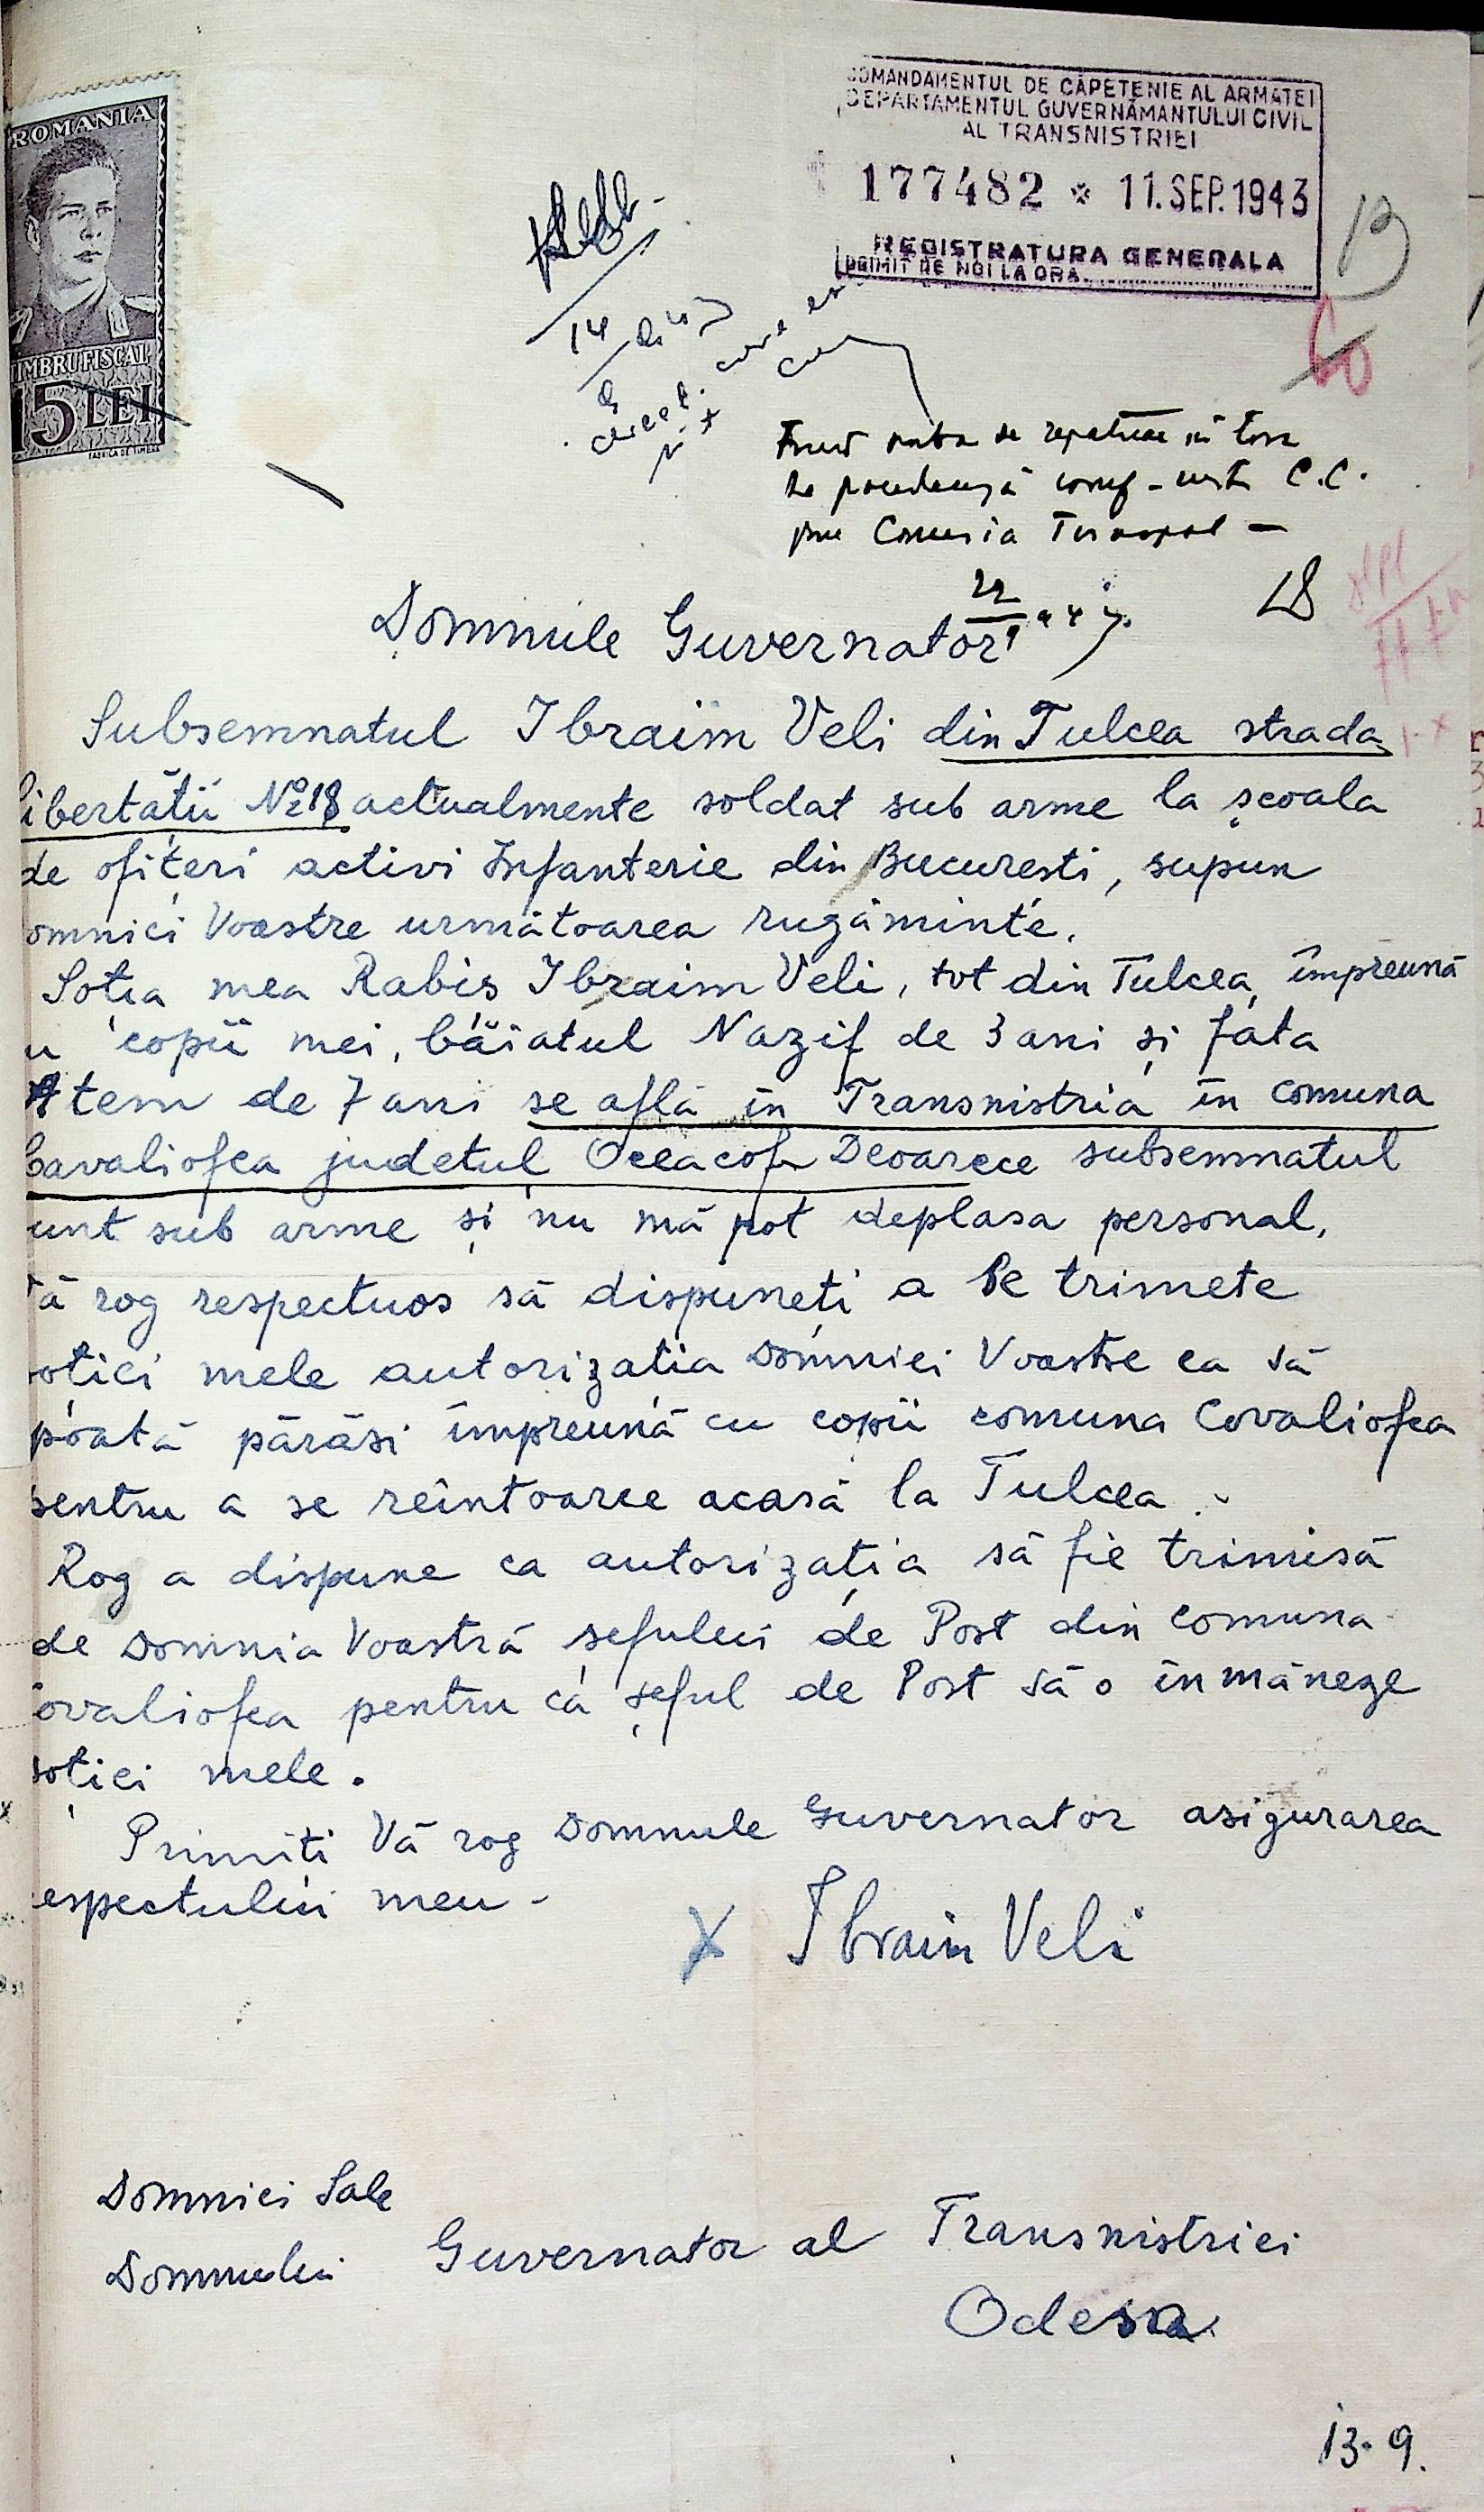 ROMANIA
TIMBRU FISCAL
15 LEI
FABRICA DE TIMBRE
COMANDAMENTUL DE CĂPETENIE AL ARMATEI
DEPARTAMENTUL GUVERNĂMANTULUI CIVIL
AL TRANSNISTRIEI
177482 * 11.SEP.1943
REGISTRATURA GENERALA
PRIMIT DE NOI LA ORA
14
60
C.C.
22
Domnule Guvernator
Subsemnatul Ibraim Veli din Tulcea strada
libertătii № 18 actualmente soldat sub arme la școala
de ofițeri activi Infanterie din Bucuresti, supun
omniei Voastre următoarea rugăminte.
Soția mea Rabis Ibraim Veli, tot din Tulcea, împreună
u copii mei, băiatul Nazif de 3 ani și fata
Atem de 7 ani se află în Transnistria în comuna
Cavaliofca judetul Oceacof Deoarece subsemnatul
unt sub arme și nu mă pot deplasa personal,
ă rog respectuos să dispuneți a se trimete
oției mele autorizația Domniei Voastre ca să
poată părăsi împreună cu copii comuna Covaliofca
pentru a se reîntoarce acasă la Tulcea.
Rog a dispune ca autorizația să fie trimisă
de Domnia Voastră șefului de Post din comuna
ovaliofca pentru ca șeful de Post să o înmâneze
soției mele.
Primiți Vă rog Domnule Guvernator asigurarea
espectului meu -
X Ibraim Veli
Domniei Sale
Domnului Guvernator al Transnistriei
Odesa
13-9.